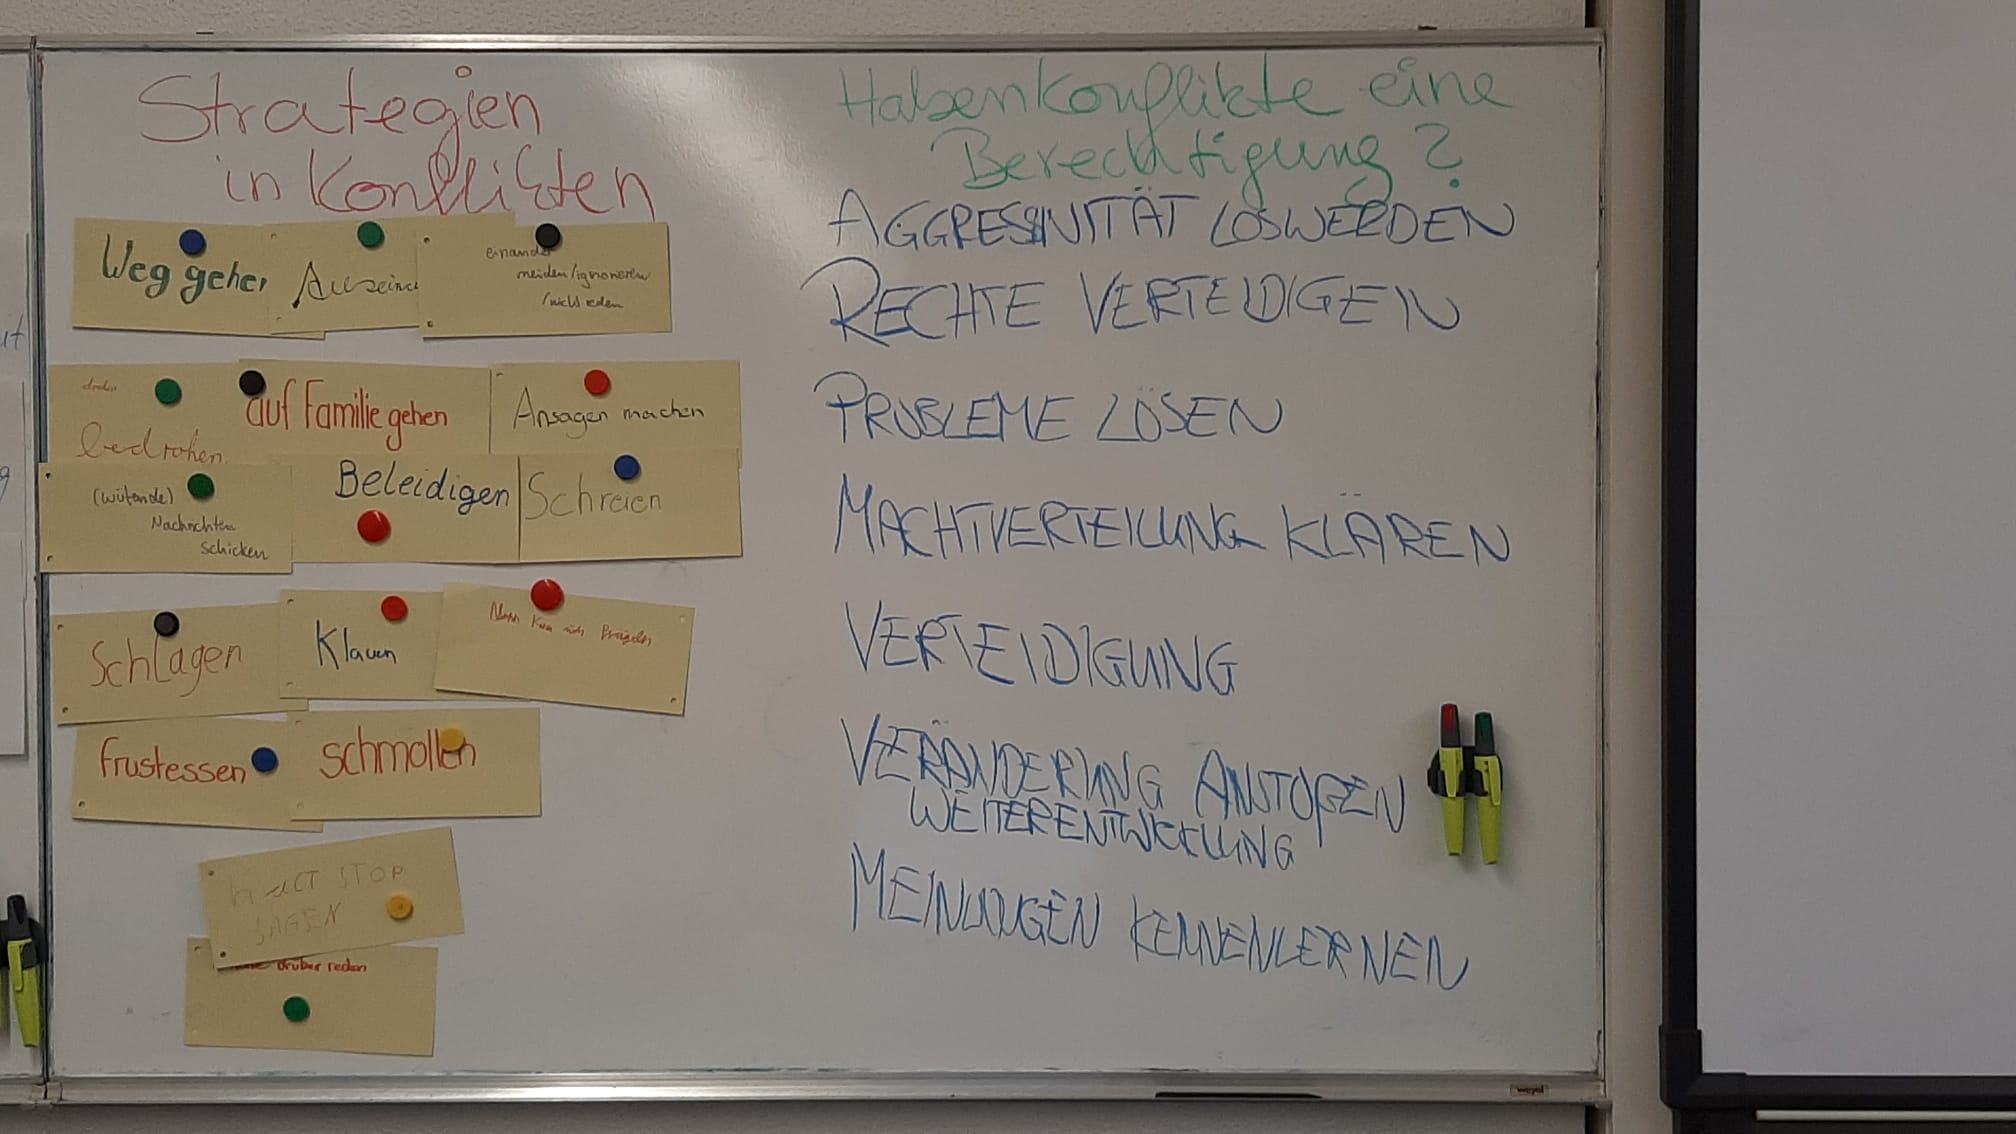 Strategien
in Konflikten
Weg gehen
Auseina
einander
meiden/ignorieren
/nicht reden
drohen
bedrohen
auf Familie gehen
Ansagen machen
(wütende)
Nachrichten
schicken
Beleidigen
Schreien
Schlagen
Klauen
Man kan sich Prügeln
frustessen
schmollen
STOP
SAGEN
drüber reden
Haben Konflikte eine
Berechtigung?
AGGRESSIVITÄT LOSWERDEN
RECHTE VERTEIDIGEN
PROBLEME LÖSEN
MACHTVERTEILUNG KLÄREN
VERTEIDIGUNG
VERÄNDERUNG ANSTOßEN
WEITERENTWICKLUNG
MEINUNGEN KENNENLERNEN
weyel
ut
g